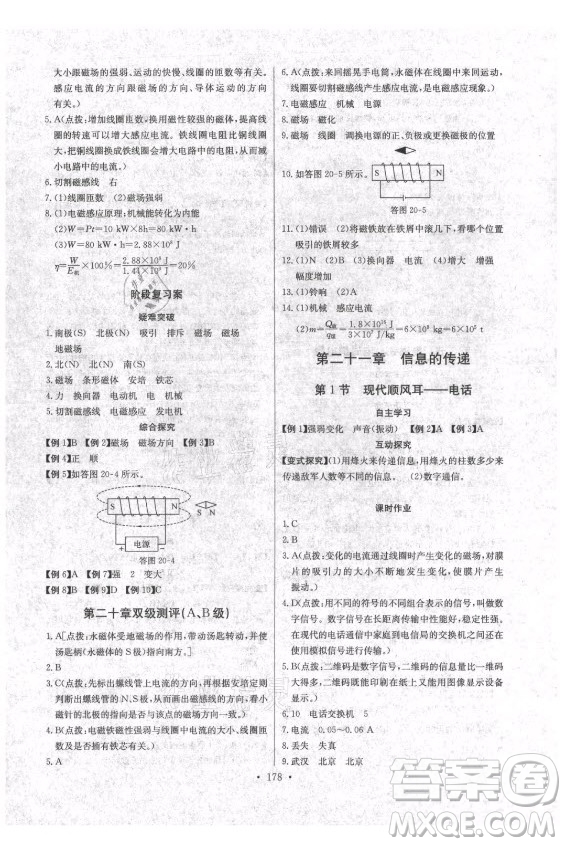 大小跟磁场的强弱、运动的快慢、线圈的匝数等有关;
感应电流的方向跟磁场的方向、导体运动的方向
有关。)
5. A(点拨:增加线圈匝数,换用磁性较强的磁体,提高
转速可以增大产生的感应电流。铁线圈的电阻比铜线
圈的电阻大,故将铜线圈换成铁线圈会增大电阻,从而减
小电路中的电流。)
6. 切割磁感线 右
7. (1)线圈匝数 (2)磁场强弱
8. (1)电磁感应原理;机械能转化为内能
(2)W=Pt=10 kW×8h=80 kW·h
(3)W=80 kW·h=2.88×10⁸ J
η=W/E机×100%=2.88×10⁸ J/1.44×10⁹ J=20%
阶段复习案
疑难突破
1. 南极(S) 北(N) 吸引 排斥 磁场 磁场
地磁场
2. 北(N)
3. 磁场 条形磁体 安培 铁芯
4. 力 换向器 电动机 电 电能
5. 切割磁感线 感应电流 发电机
综合探究
【例1】B 【例2】磁场 磁场方向 【例3】B
【例4】正 顺
【例5】如答图 20-4 所示。
S N
S N
+ 电源 −
答图 20-4
【例6】A 【例7】强 2 变大
【例8】B 【例9】D 【例10】C
第二十章双级测评(A、B级)
1. A[点拨:永磁体受地磁场的作用,带动汤匙转动,并使
汤匙柄(永磁体的S极)指向南方。]
2. B
3. D(点拨:先确定螺线管上电流的方向,再根据安培定则
判断出螺线管的N、S极或直接判断出磁感线的方向,看小
磁针的北极的指向是否与磁场方向一致。)
4. B(点拨:电磁铁磁性强弱与线圈匝数、电流大小有关,
还与是否插有铁芯有关。)
5. A
6. A(点拨:来回摇晃手电筒,永磁体在线圈中来回运动,
线圈切割磁感线产生感应电流,这是电磁感应现象。)
7. 电磁感应 机械 电
8. 磁场 磁场
9. 磁场 线圈 调换电源的正、负极或磁极的位置
10. 如答图 20-5 所示。
S N
答图 20-5
11. (1)错误 (2)将磁铁放在铁屑中,看哪个位置
吸引的铁屑较多
12. (1)磁场 电流 (2)换向器 (3)相互 增强
幅度增加
13. (1)铃响 (2)A
14. (1)机械 感应电流
第二十一章 信息的传递
第1节 现代顺风耳——电话
自主学习
【例1】强弱变化 声音(振动) 【例2】A 【例3】A
互动探究
【变式探究】(1)用烽火来传递信息,用烽火的柱数多少来
传递敌军人数等不同的信息。 (2)数字通信。
课时作业
1. C
2. C
3. A(点拨:变化的电流通过线圈时产生变化的磁场,对膜
片的吸引力的大小不断变化,使膜片振动产生声音。)
4. D(点拨:信号分为模拟信号和数字信号,模拟信号容易
失真,数字信号形式简单,抗干扰能力强,稳定性强,
现在的电话通信中交换机间传递的信号一般采用数
字信号。)
5. B(点拨:二维码是数字信号,二维码的黑白相间图案是
利用光的反射原理扫描的,二维码的信息可以用显示
屏显示。)
6. 10 电话交换机 5
7. 电流 0.05~0.06 A
8. 丢失 失真
9. 武汉 北京 北京
· 178 ·
答案圈
MXQE.COM